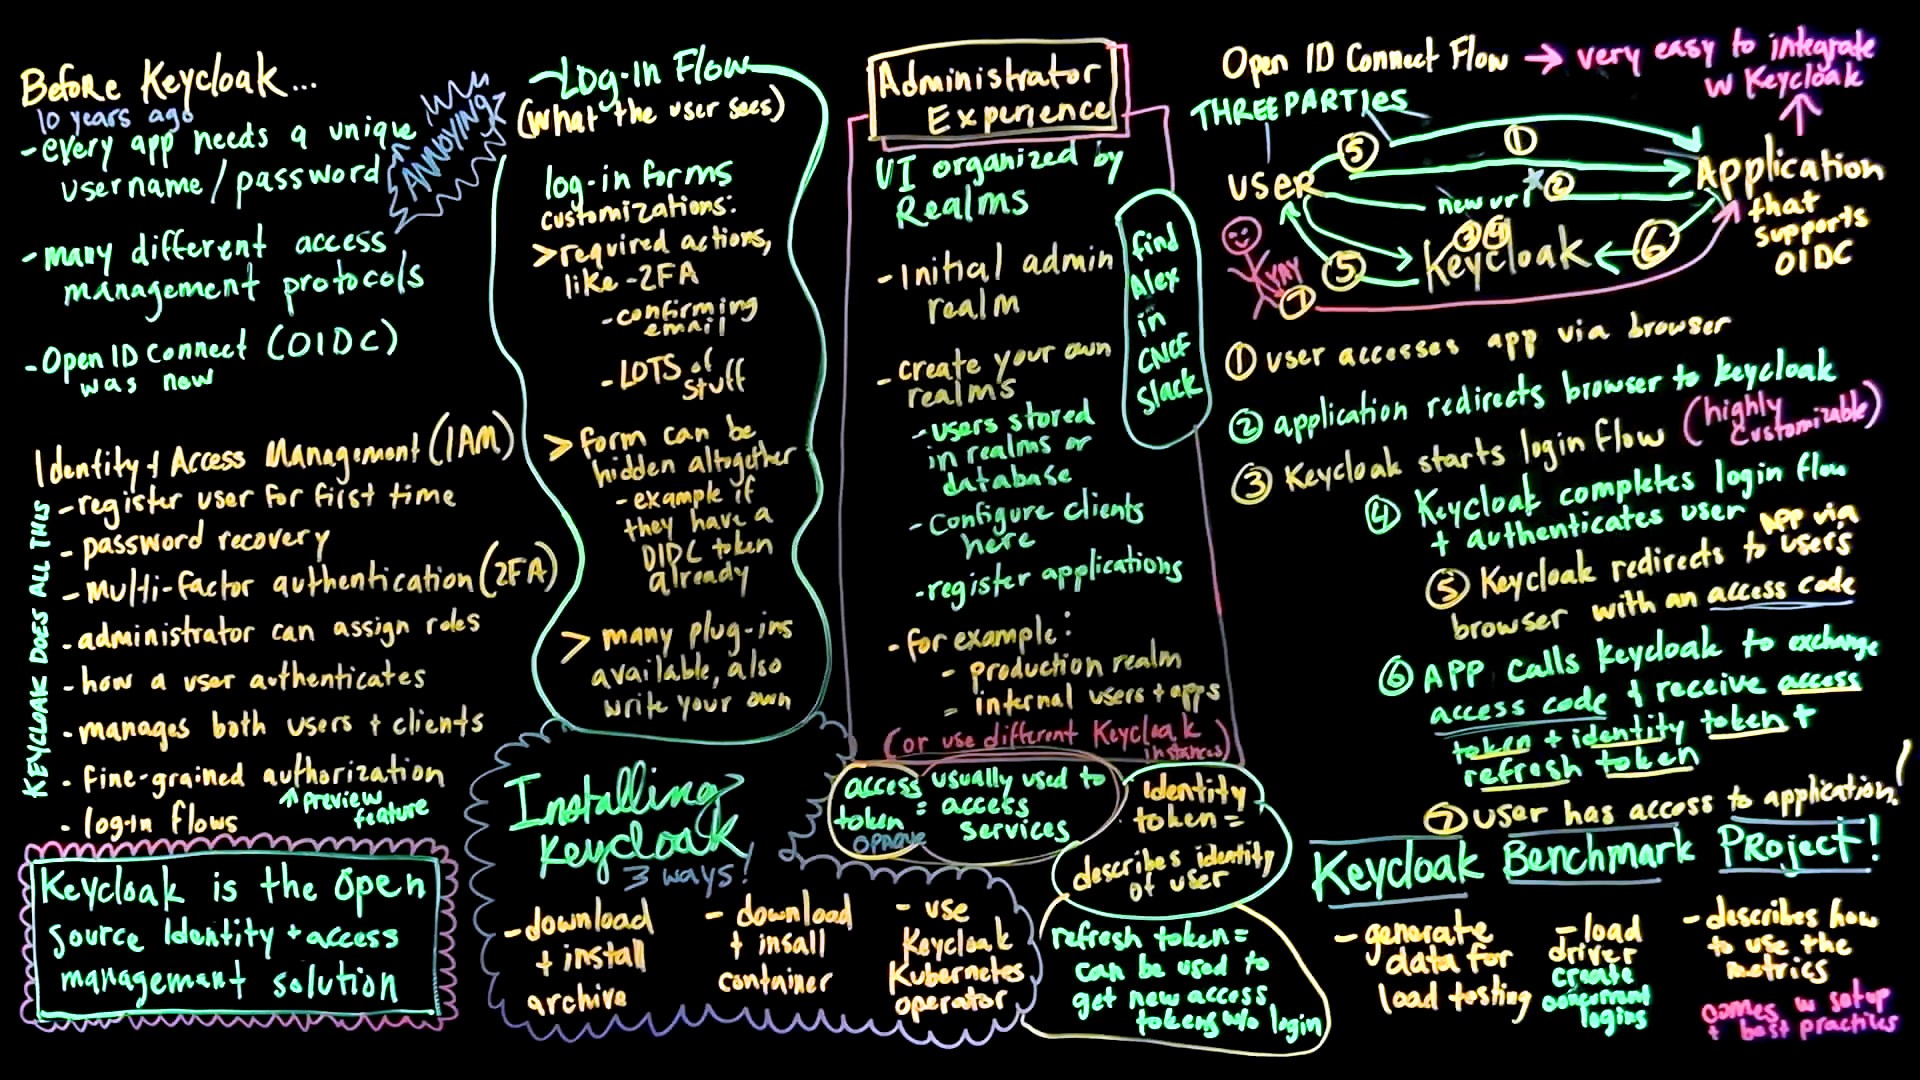 Before Keycloak...
10 years ago
- every app needs a unique
username/password
ANNOYING
- many different access
management protocols
- Open ID Connect (OIDC)
was new
Identity + Access Management (IAM)
- register user for first time
- password recovery
- multi-factor authentication (2FA)
- administrator can assign roles
- how a user authenticates
- manages both users + clients
- fine-grained authorization
preview
feature
- log-in flows
KEYCLOAK DOES ALL THIS
Keycloak is the open
source Identity + access
management solution
Log-In Flow
(what the user sees)
log-in forms
customizations:
> required actions,
like -2FA
- confirming
email
- LOTS of
stuff
> form can be
hidden altogether
- example if
they have a
OIDC token
already
> many plug-ins
available, also
write your own
Installing
Keycloak
3 ways!
- download
+ install
archive
- download
+ insall
container
- use
Keycloak
Kubernetes
operator
Administrator
Experience
UI organized by
Realms
- Initial admin
realm
- create your own
realms
- users stored
in realms or
database
- Configure clients
here
- register applications
- for example:
- production realm
- internal users + apps
(or use different Keycloak
instances)
find
Alex
in
CNCF
Slack
access
token =
usually used to
access
services
identity
token =
describes identity
of user
refresh token =
can be used to
get new access
tokens w/o login
Open ID Connect Flow → very easy to integrate
w Keycloak
THREE PARTIES
5
1
USER
new url
2
Application
that
supports
OIDC
3 4
Keycloak
5
6
YAY
7
1 user accesses app via browser
2 application redirects browser to keycloak
3 Keycloak starts login flow (highly
customizable)
4 Keycloak completes login flow
+ authenticates user
5 Keycloak redirects to app via
users
browser with an access code
6 APP calls keycloak to exchange
access code + receive access
token + identity token +
refresh token
7 user has access to application!
Keycloak Benchmark Project!
- generate
data for
load testing
- load
driver
create
concurrent
logins
- describes how
to use the
metrics
comes w setup
+ best practices